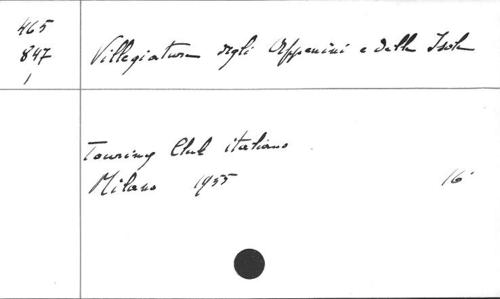 465
847
1
Villegiatura degli Appenini e delle Isole
Touring Club italiano
Milano 1955 16°